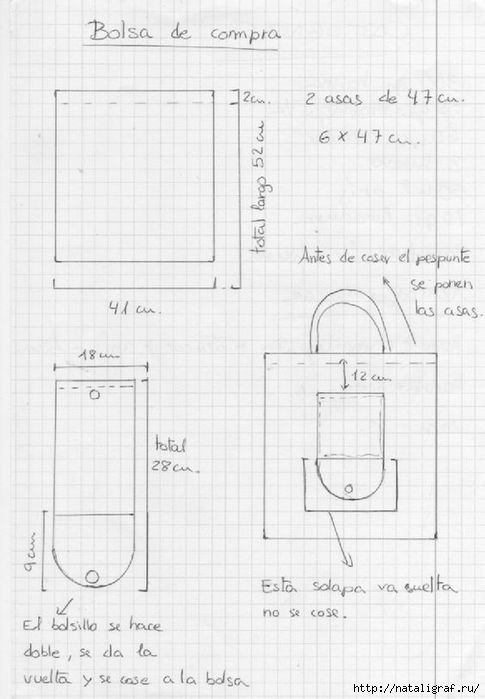 Bolsa de compra
2cm.
2 asas de 47 cm.
6 x 47 cm.
total largo 52 cm
41 cm.
Antes de coser el pespunte
se ponen
las asas.
18cm
12cm
total
28cm.
9cm
Esta solapa va suelta
no se cose.
El bolsillo se hace
doble, se da la
vuelta y se cose a la bolsa
http://nataligraf.ru/